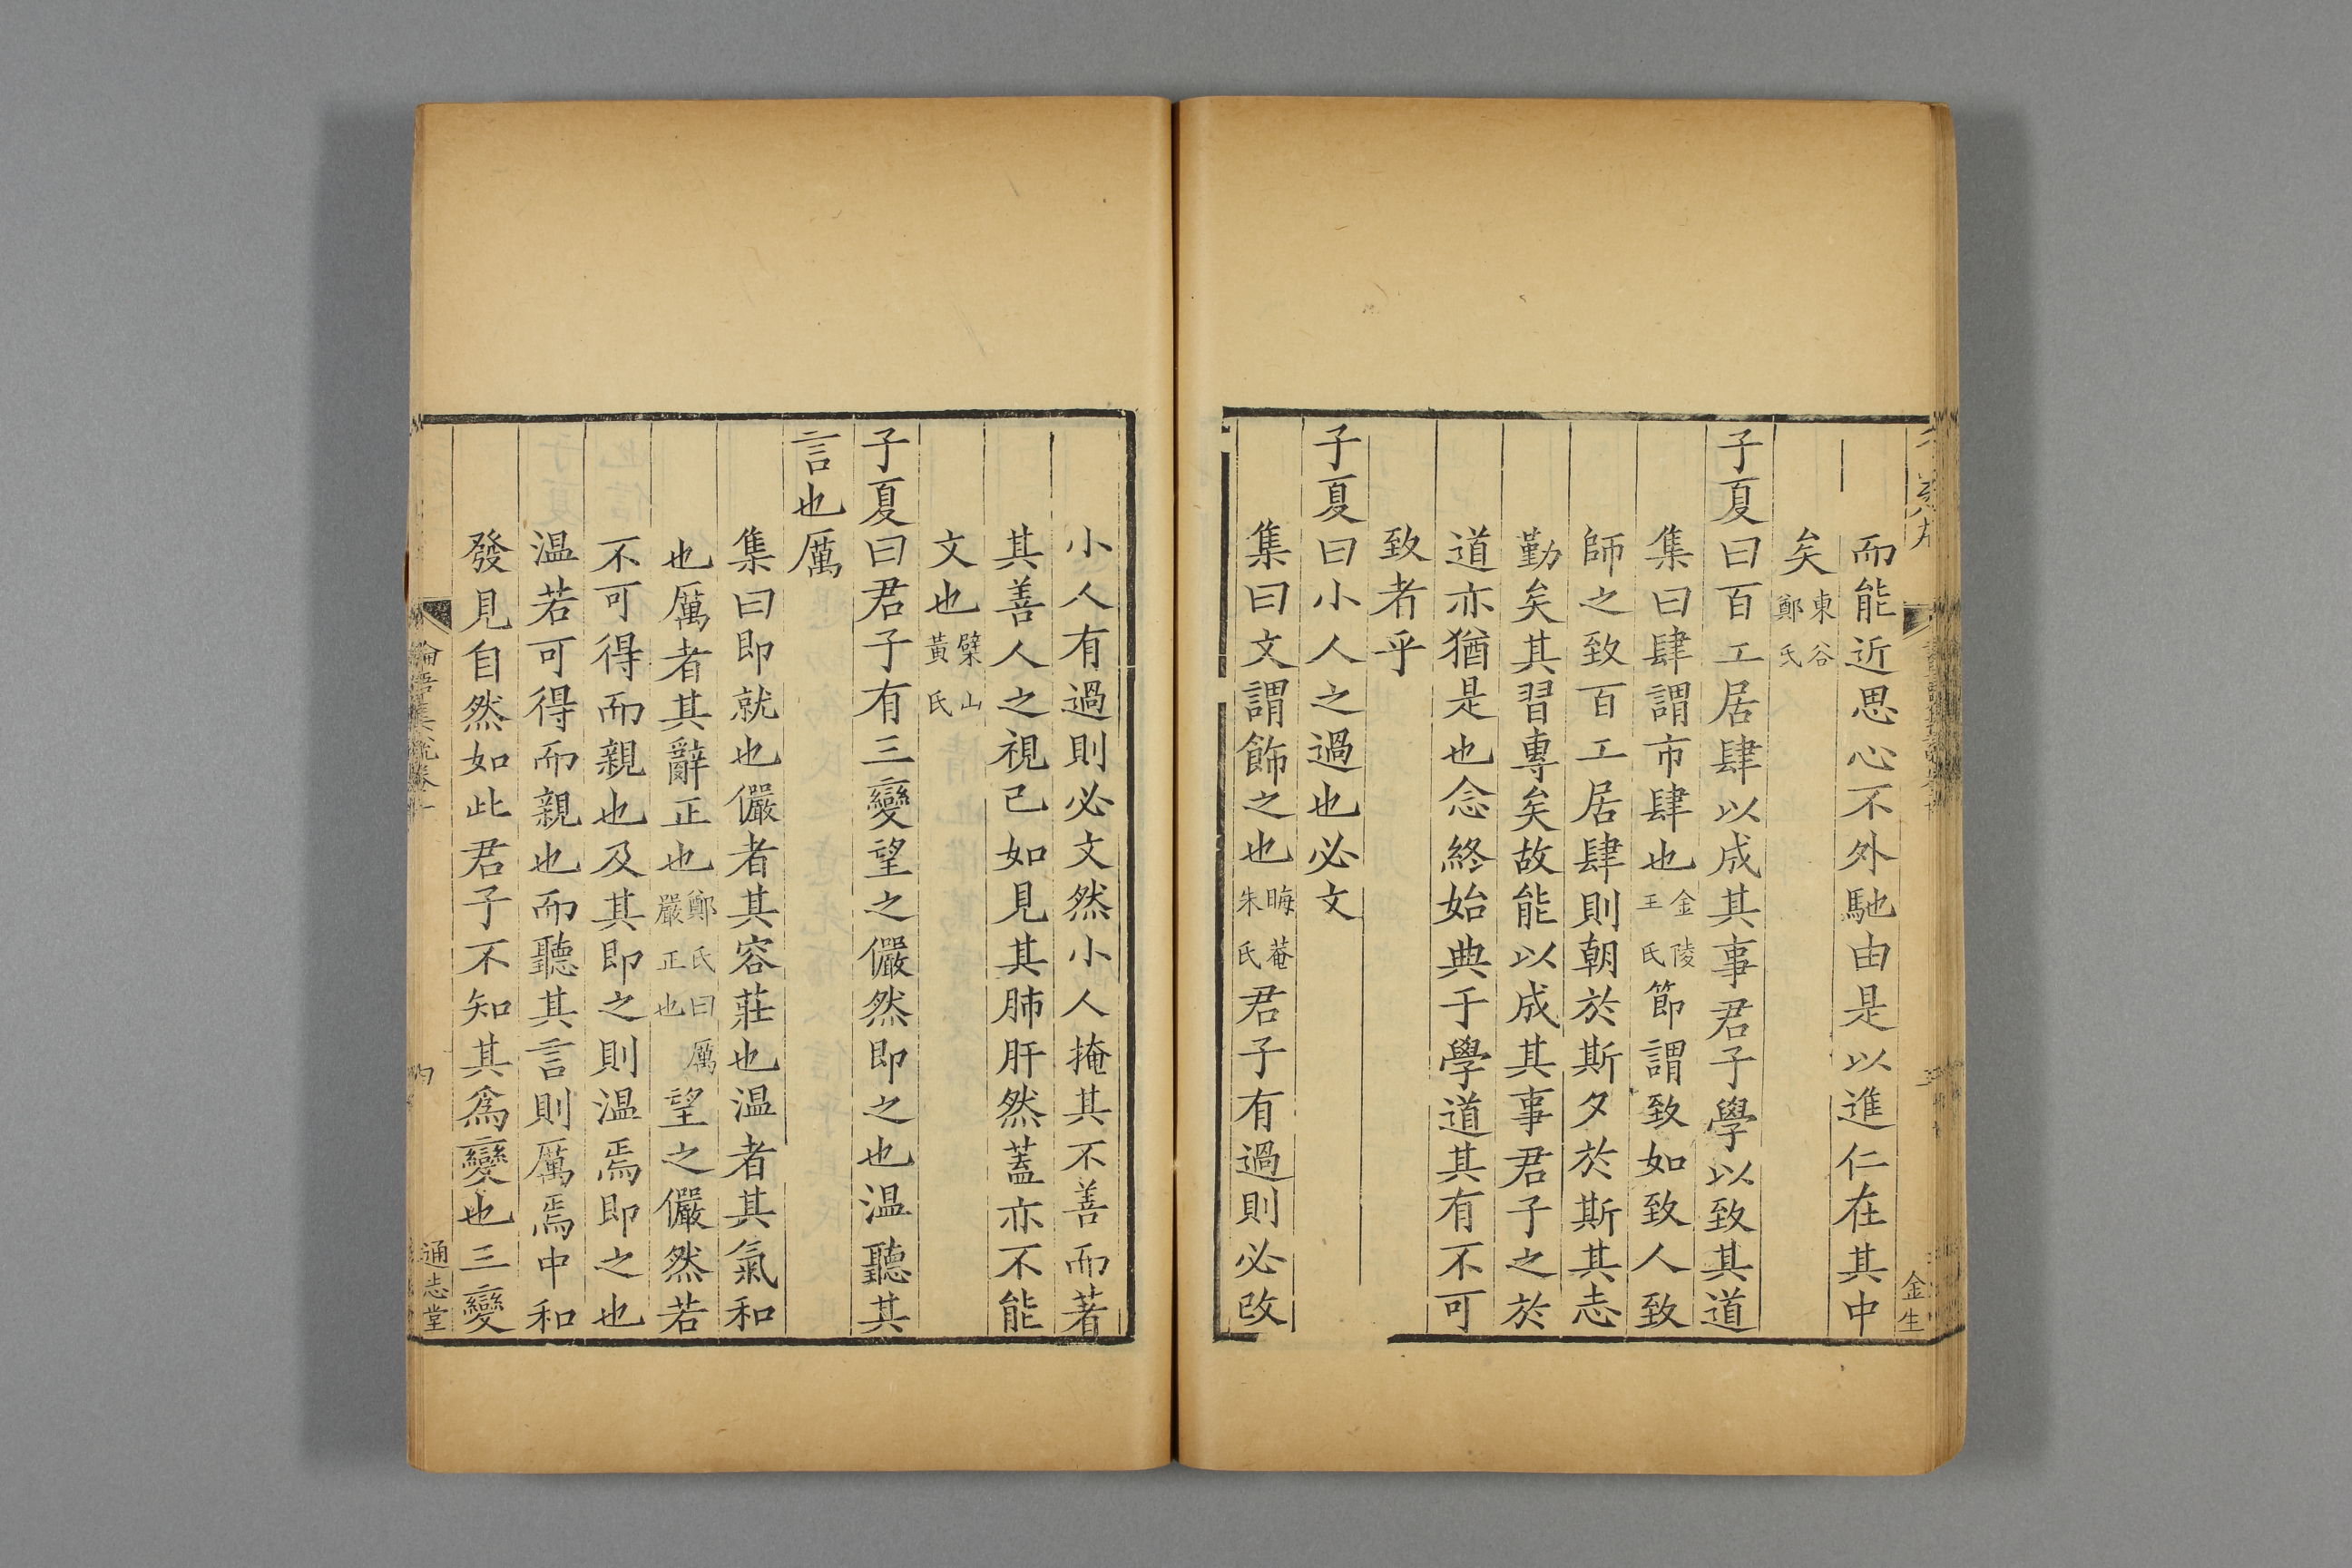 而能近思心不外馳由是以進仁在其中
矣東谷鄭氏
子夏曰百工居肆以成其事君子學以致其道
集曰肆謂市肆也金陵王氏節謂致如致人致
師之致百工居肆則朝於斯夕於斯其志
勤矣其習專矣故能以成其事君子之於
道亦猶是也念終始典于學道其有不可
致者乎
子夏曰小人之過也必文
集曰文謂飾之也晦菴朱氏君子有過則必改
金生
小人有過則必文然小人掩其不善而著
其善人之視己如見其肺肝然蓋亦不能
文也檗山黃氏
子夏曰君子有三變望之儼然即之也温聽其
言也厲
集曰即就也儼者其容莊也温者其氣和
也厲者其辭正也鄭氏曰厲嚴正也望之儼然若
不可得而親也及其即之則温焉即之也
温若可得而親也而聽其言則厲焉中和
發見自然如此君子不知其爲變也三變
論語集說卷十
通志堂